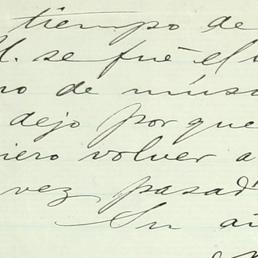 tiempo de
U. se fué el
no de músi
dejo porque
iero volver a
vez pasad
Su a